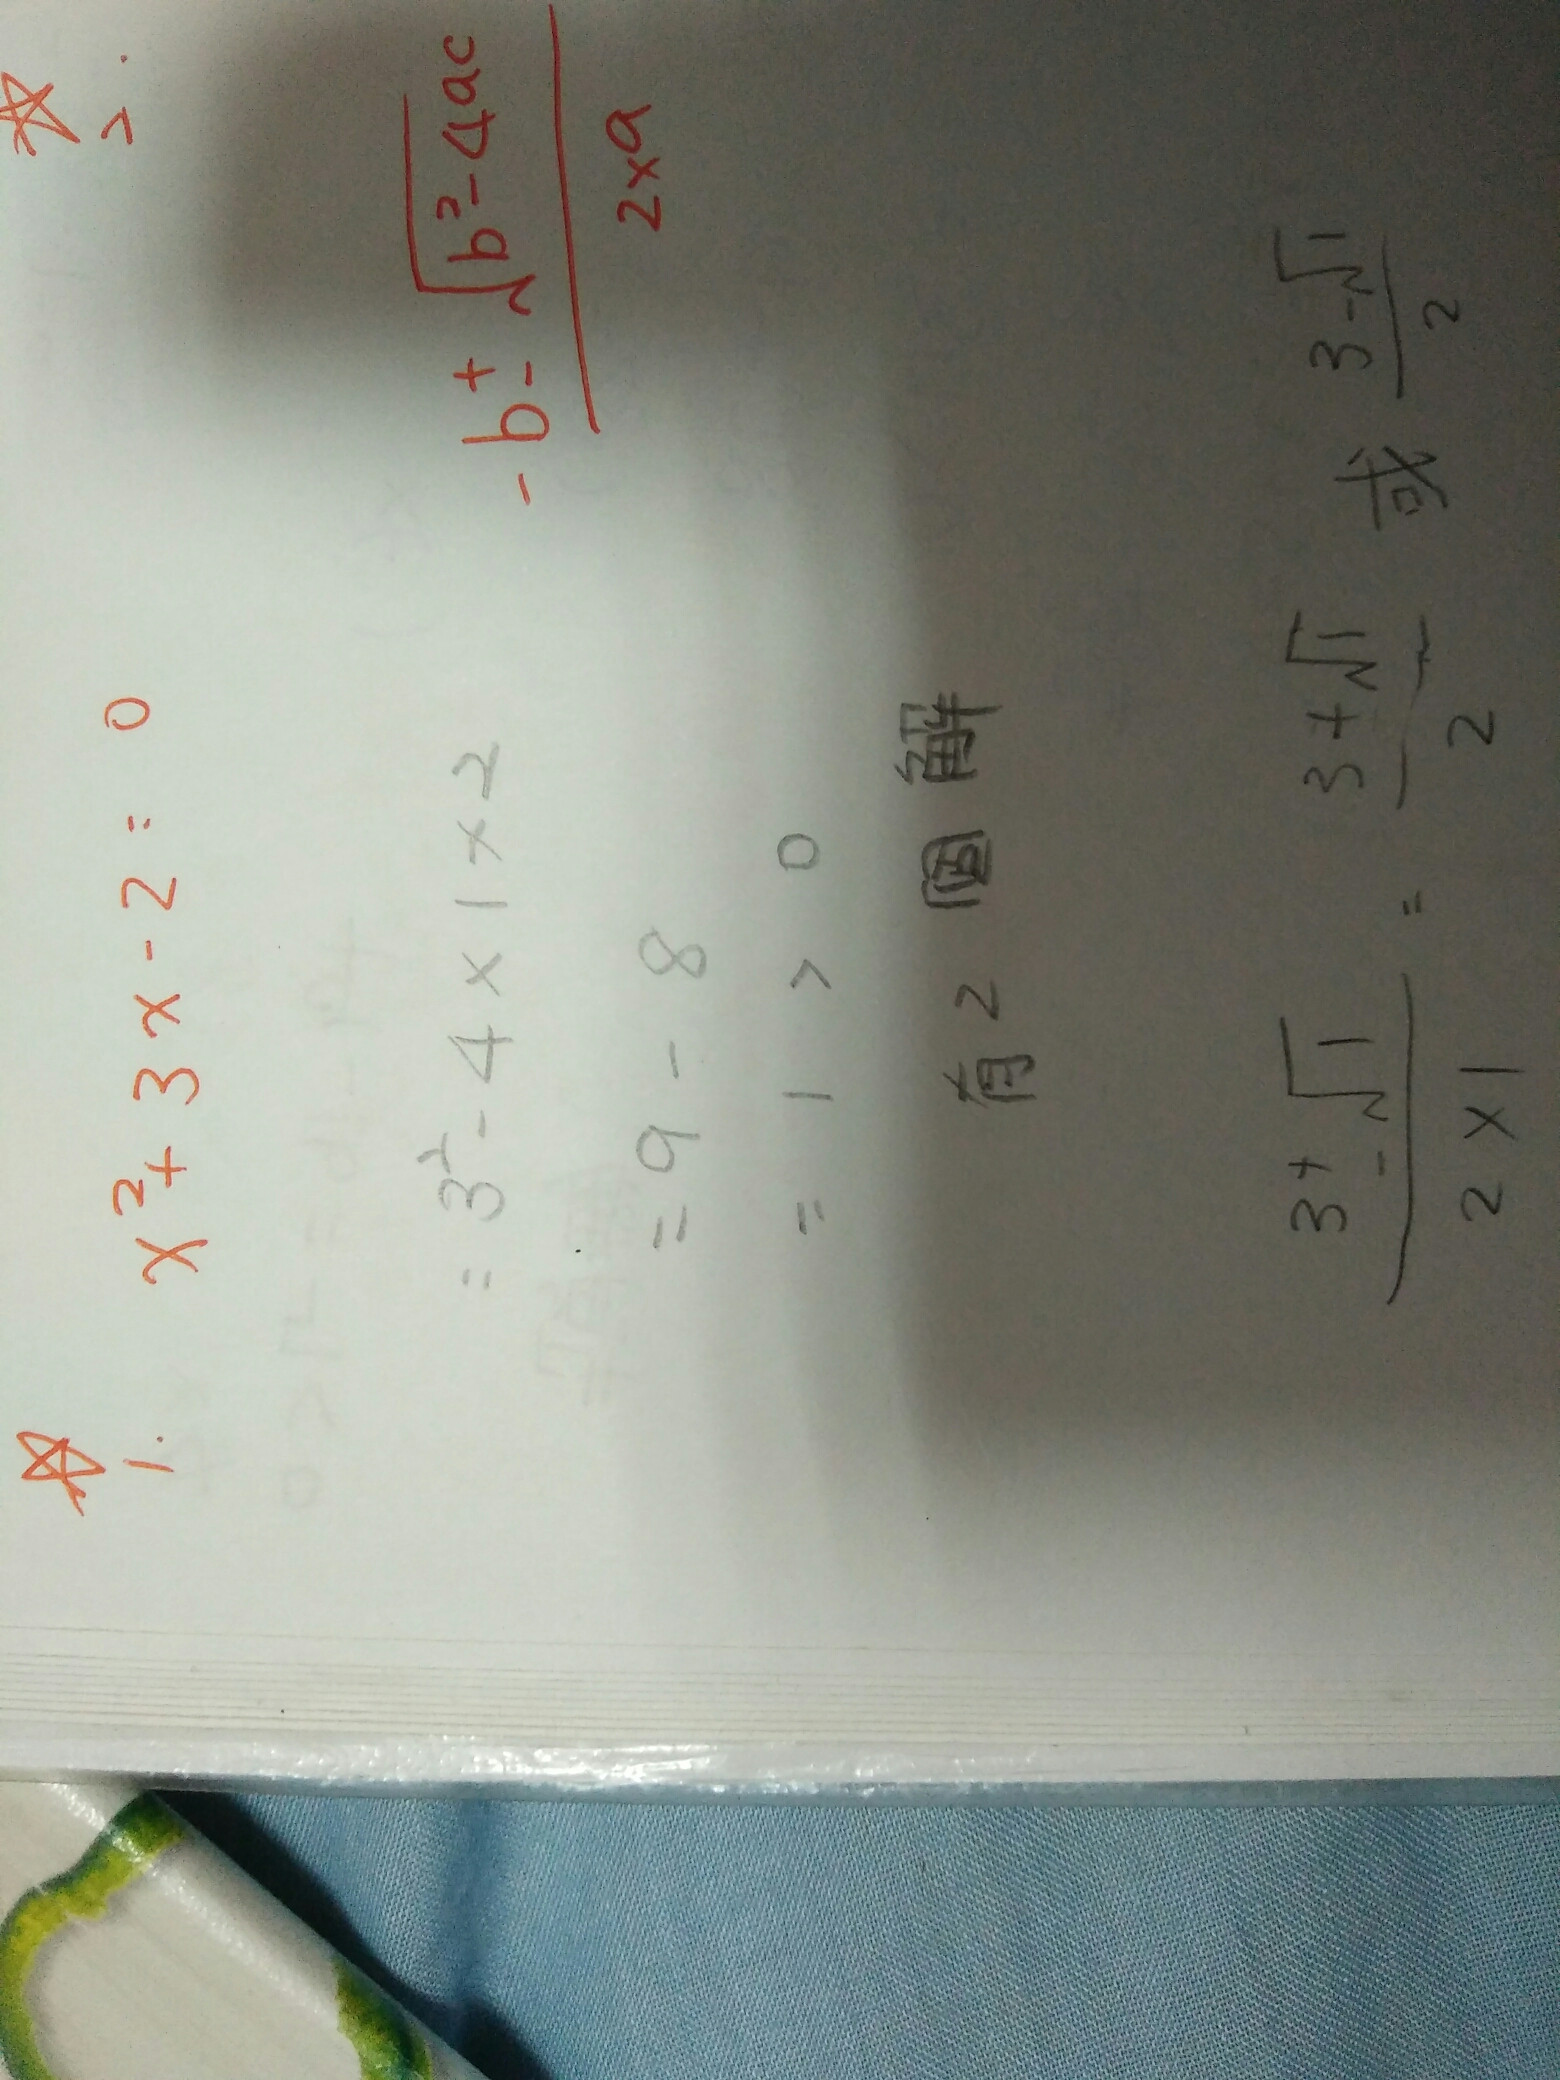 ☆ ☆
1. x²+3x-2=0 2.
-b±√b²-4ac
2xa
=3²-4×1×2
=9-8
=1>0
有2個解
3±√1 = 3+√1 或 3-√1
2×1 2 2